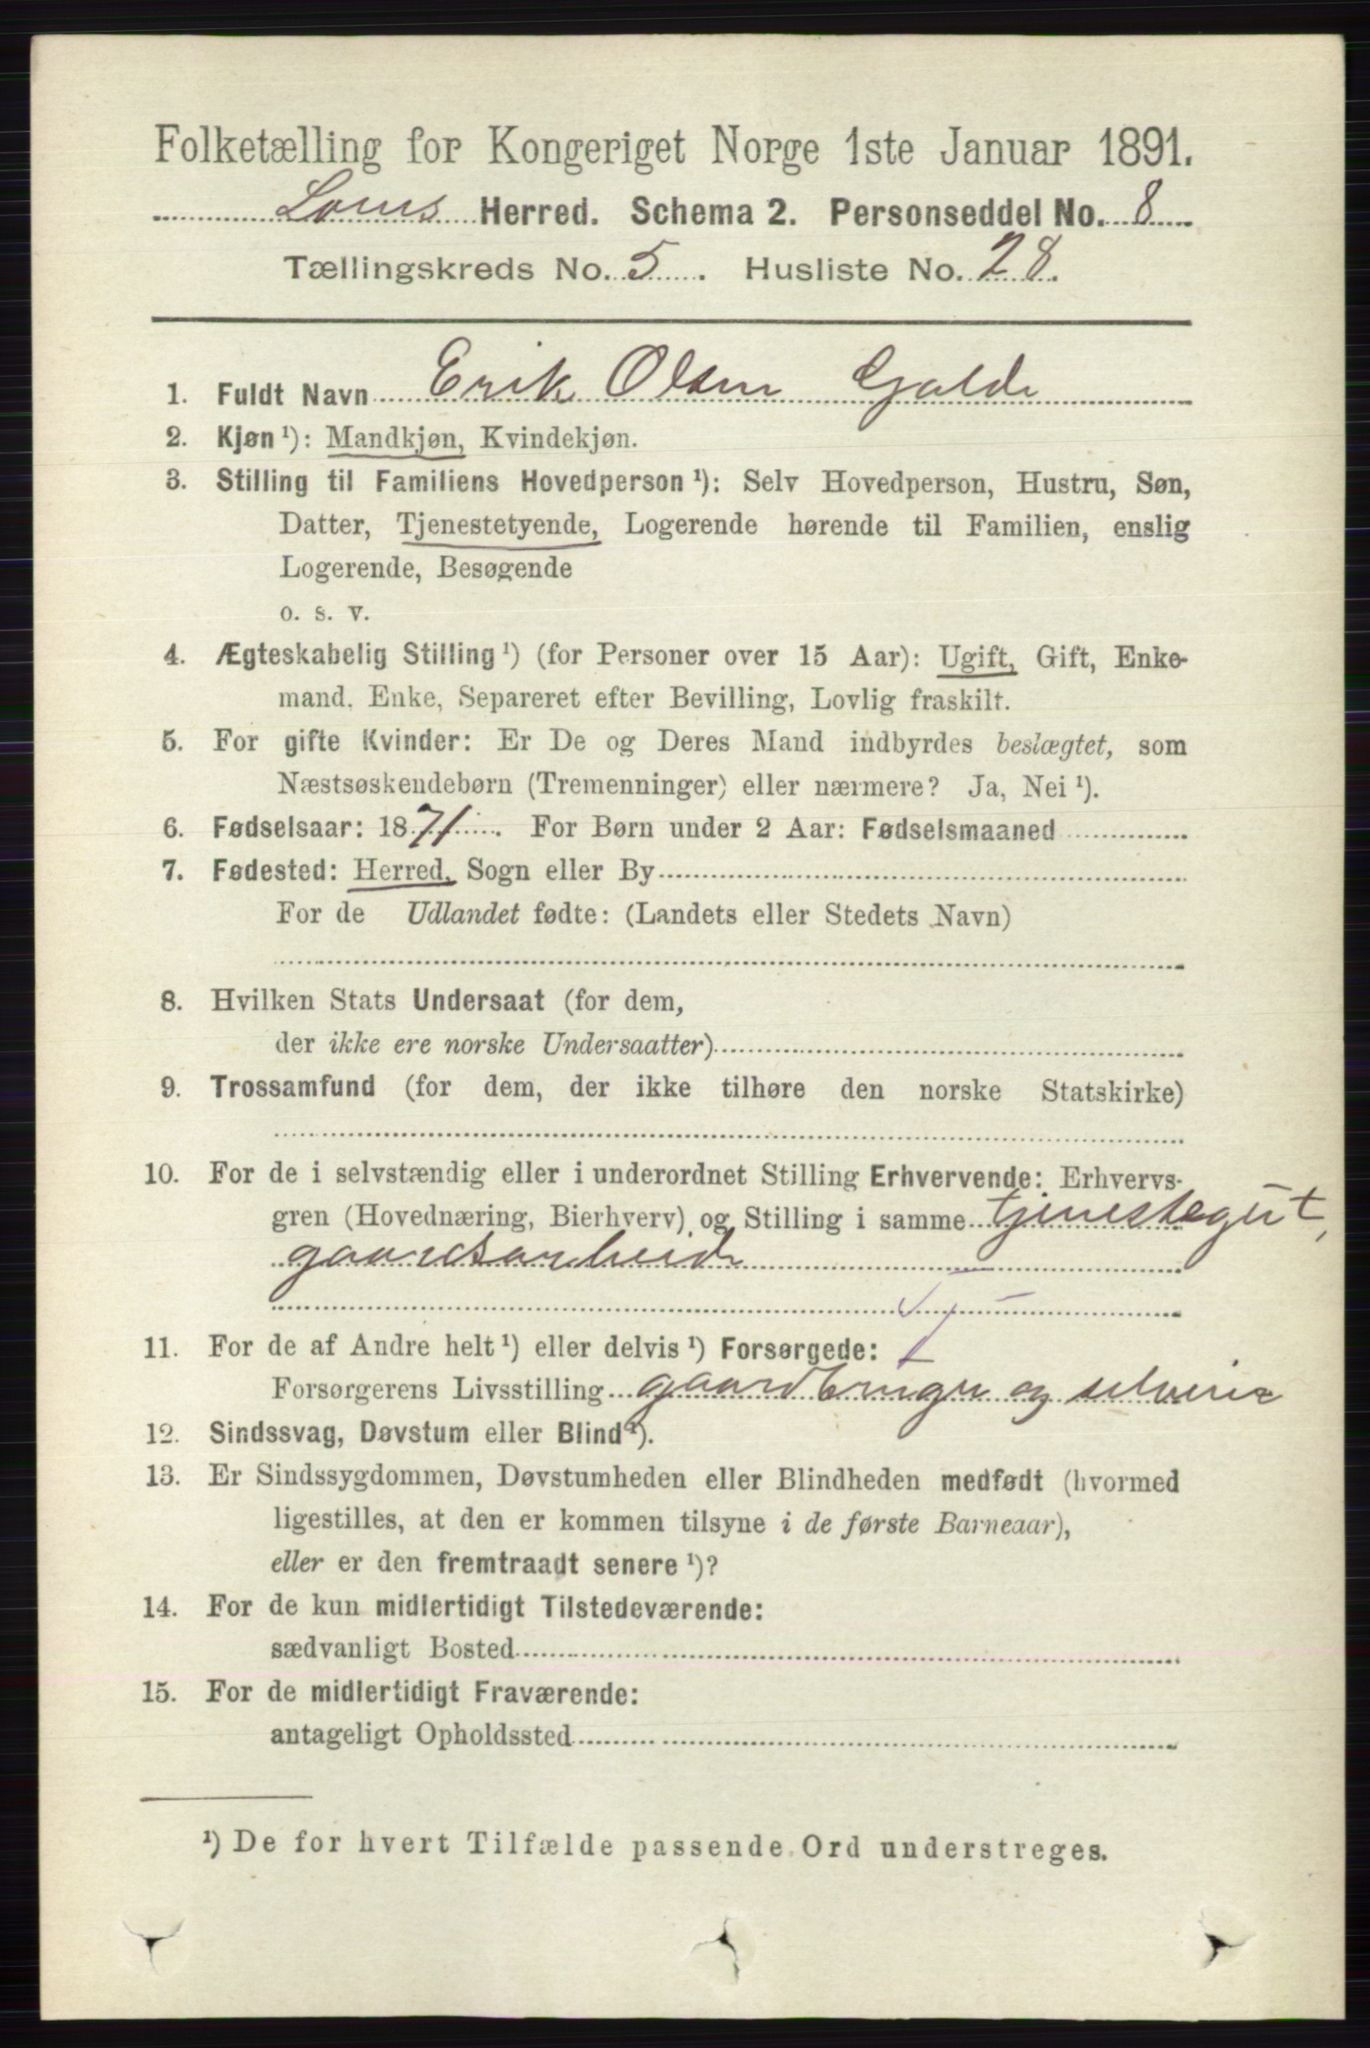 Folketælling for Kongeriget Norge 1ste Januar 1891.
Loms Herred. Schema 2. Personseddel No. 8
Tællingskreds No. 5. Husliste No. 28.
1. Fuldt Navn Erik Olsen Galde
2. Kjøn¹): Mandkjøn, Kvindekjøn.
3. Stilling til Familiens Hovedperson¹): Selv Hovedperson, Hustru, Søn,
Datter, Tjenestetyende, Logerende hørende til Familien, enslig
Logerende, Besøgende
o. s. v.
4. Ægteskabelig Stilling¹) (for Personer over 15 Aar): Ugift, Gift, Enke-
mand, Enke, Separeret efter Bevilling, Lovlig fraskilt.
5. For gifte Kvinder: Er De og Deres Mand indbyrdes beslægtet, som
Næstsøskendebørn (Tremenninger) eller nærmere? Ja, Nei¹).
6. Fødselsaar: 1871. For Børn under 2 Aar: Fødselsmaaned
7. Fødested: Herred, Sogn eller By
For de Udlandet fødte: (Landets eller Stedets Navn)
8. Hvilken Stats Undersaat (for dem,
der ikke ere norske Undersaatter)
9. Trossamfund (for dem, der ikke tilhøre den norske Statskirke)
10. For de i selvstændig eller i underordnet Stilling Erhvervende: Erhvervs-
gren (Hovednæring, Bierhverv) og Stilling i samme tjenestegut,
gaardsarbeide
11. For de af Andre helt¹) eller delvis¹) Forsørgede:
Forsørgerens Livsstilling gaardbruger og selveier
12. Sindssvag, Døvstum eller Blind¹).
13. Er Sindssygdommen, Døvstumheden eller Blindheden medfødt (hvormed
ligestilles, at den er kommen tilsyne i de første Barneaar),
eller er den fremtraadt senere¹)?
14. For de kun midlertidigt Tilstedeværende:
sædvanligt Bosted
15. For de midlertidigt Fraværende:
antageligt Opholdssted
¹) De for hvert Tilfælde passende Ord understreges.